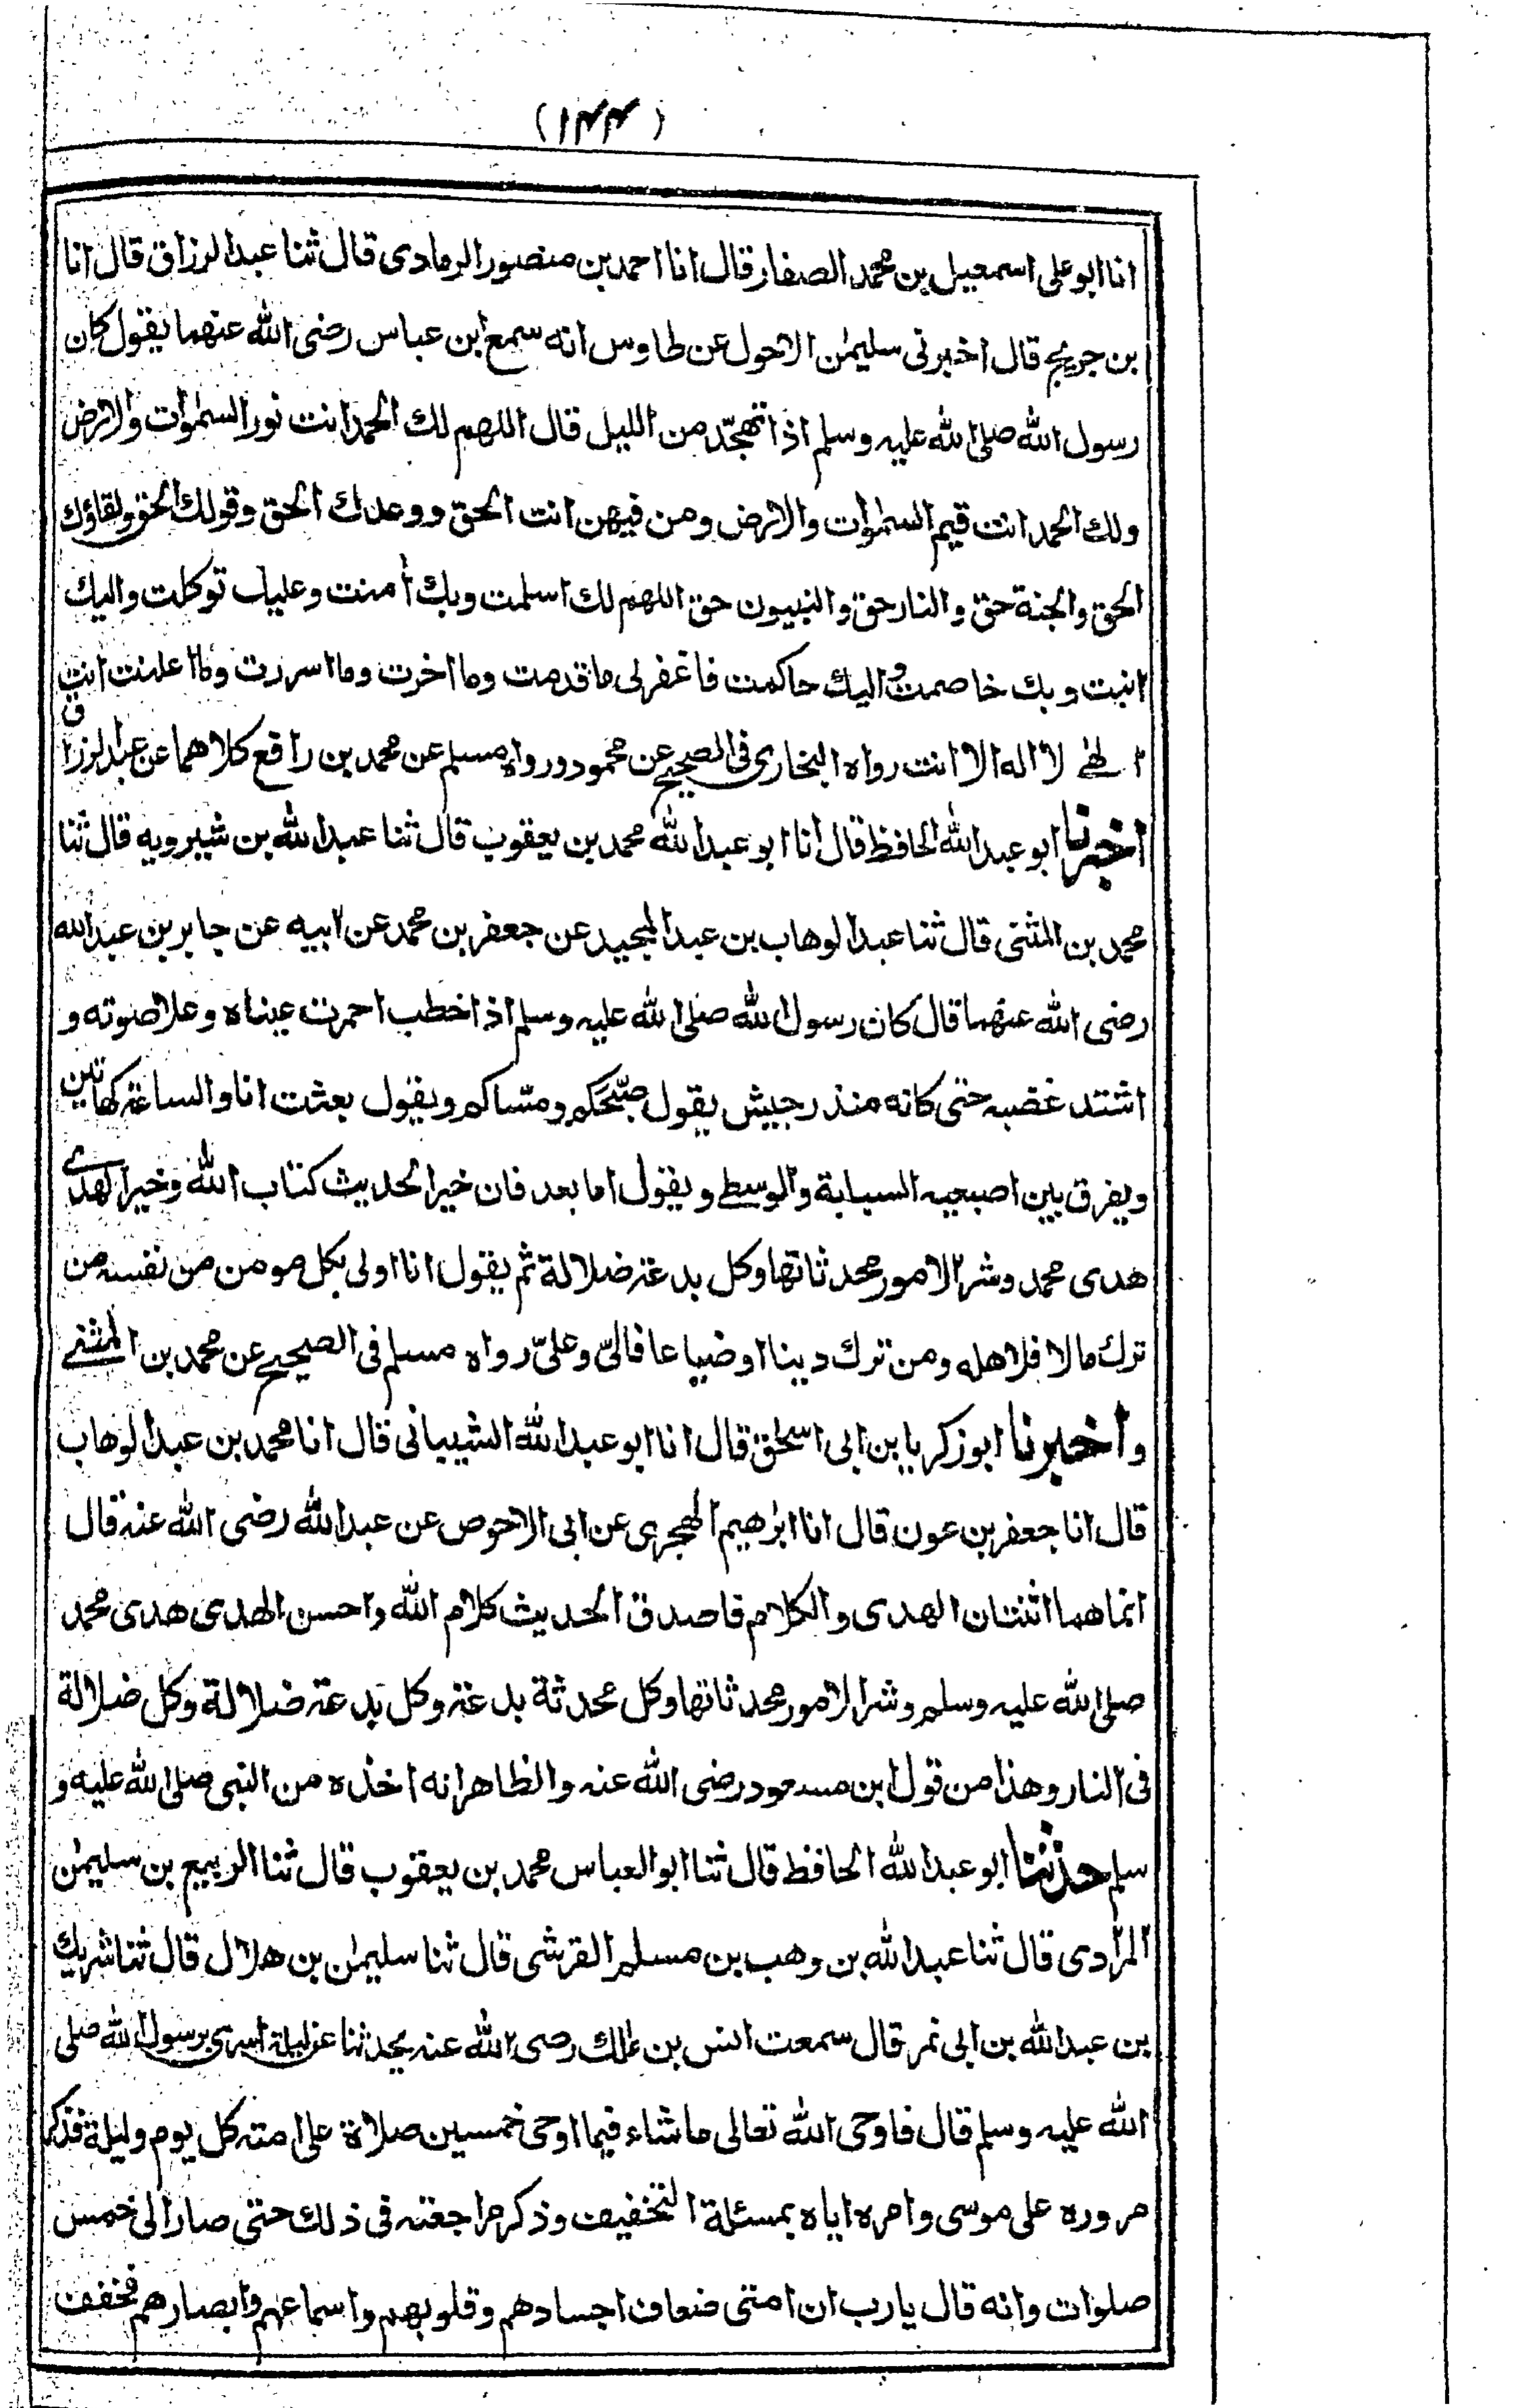 (۱۴۴)
انا ابو على اسمعيل بن محمد الصفار قال انا احمد بن منصور الرمادى قال ثنا عبد الرزاق قال انا
بن جريج قال اخبرنى سليمٰن الاحول عن طاوس انه سمع ابن عباس رضى الله عنهما يقول كان
رسول الله صلى الله عليه وسلم اذا تهجّد من الليل قال اللهم لك الحمد انت نور السمٰوات والارض
ولك الحمد انت قيم السمٰوات والارض ومن فيهن انت الحق ووعدك الحق وقولك الحق ولقاؤك
الحق والجنة حق والنار حق والنبيون حق اللهم لك اسلمت وبك أمنت وعليك توكلت واليك
انبت وبك خاصمت واليك حاكمت فاغفر لى ما قدمت وما اخرت وما اسررت وما اعلنت انت
الهٰى لا اله الا انت رواه البخارى فى الصحيح عن محمود ورواه مسلم عن محمد بن رافع كلاهما عن عبد الرزاق
اخبرنا ابو عبد الله الحافظ قال انا ابو عبد الله محمد بن يعقوب قال ثنا عبد الله بن شيرويه قال ثنا
محمد بن المثنى قال ثنا عبد الوهاب بن عبد المجيد عن جعفر بن محمد عن ابيه عن جابر بن عبد الله
رضى الله عنهما قال كان رسول الله صلى الله عليه وسلم اذا خطب احمرت عيناه وعلا صوته و
اشتد غضبه حتى كانه منذر جيش يقول صبّحكم ومسّاكم ويقول بعثت انا والساعة كهاتين
ويفرق بين اصبعيه السبابة والوسطى ويقول اما بعد فان خير الحديث كتاب الله وخير الهدى
هدى محمد وشر الامور محدثاتها وكل بدعة ضلالة ثم يقول انا اولى بكل مومن من نفسه من
ترك مالا فلاهله ومن ترك دينا او ضياعا فالىّ وعلىّ رواه مسلم فى الصحيح عن محمد بن المثنى
واخبرنا ابو زكريا بن ابى اسحٰق قال انا ابو عبد الله الشيبانى قال انا محمد بن عبد الوهاب
قال انا جعفر بن عون قال انا ابرٰهيم الهجرى عن ابى الاحوص عن عبد الله رضى الله عنه قال
انما هما اثنتان الهدى والكلام فاصدق الحديث كلام الله واحسن الهدى هدى محمد
صلى الله عليه وسلم وشر الامور محدثاتها وكل محدثة بدعة وكل بدعة ضلالة وكل ضلالة
فى النار وهذا من قول ابن مسعود رضى الله عنه والظاهر انه اخذه من النبى صلى الله عليه و
سلم حدثنا ابو عبد الله الحافظ قال ثنا ابو العباس محمد بن يعقوب قال ثنا الربيع بن سليمٰن
المرادى قال ثنا عبد الله بن وهب بن مسلم القرشى قال ثنا سليمٰن بن هلال قال ثنا شريك
بن عبد الله بن ابى نمر قال سمعت انس بن مٰلك رضى الله عنه يحدثنا عن ليلة اسرى برسول الله صلى
الله عليه وسلم قال فاوحى الله تعالى ما شاء فيما اوحى خمسين صلاة على امته كل يوم وليلة فذكر
مروره على موسى وامره اياه بمسئلة التخفيف وذكر مراجعته فى ذلك حتى صار الى خمس
صلوات وانه قال يارب ان امتى ضعاف اجسادهم وقلوبهم واسماعهم وابصارهم فخفف